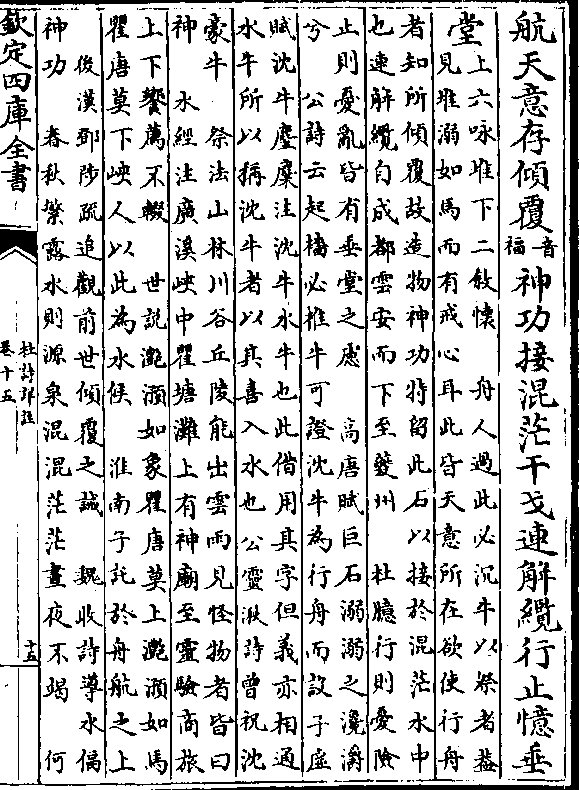 航天意存傾覆音福神功接混茫干戈連解纜行止憶垂
堂上六咏堆下二敘懷　舟人過此必沉牛以祭者葢
見堆溺如馬而有戒心耳此皆天意所在欲使行舟
者知所傾覆故造物神功特留此石以接於混茫水中
也連解纜自成都雲安而下至夔州　杜臆行則憂險
止則憂亂皆有垂堂之慮　高唐賦巨石溺溺之瀺灂
兮　公詩云起檣必椎牛可證沈牛為行舟而設子虛
賦沈牛麈麋注沈牛水牛也此借用其字但義亦相通
水牛所以稱沈牛者以其喜入水也公靈湫詩曾祝沈
豪牛　祭法山林川谷丘陵能出雲雨見怪物者皆曰
神　水經注廣溪峽中瞿塘灘上有神廟至靈驗商旅
上下饗薦不輟　世説灔澦如象瞿唐莫上灔澦如馬
瞿唐莫下峽人以此為水候　淮南子託於舟航之上
後漢鄧陟疏追觀前世傾覆之誡　魏收詩導水偪
神功　春秋繁露水則源泉混混茫茫晝夜不竭　何
欽定四庫全書
杜詩詳註
卷十五
十五